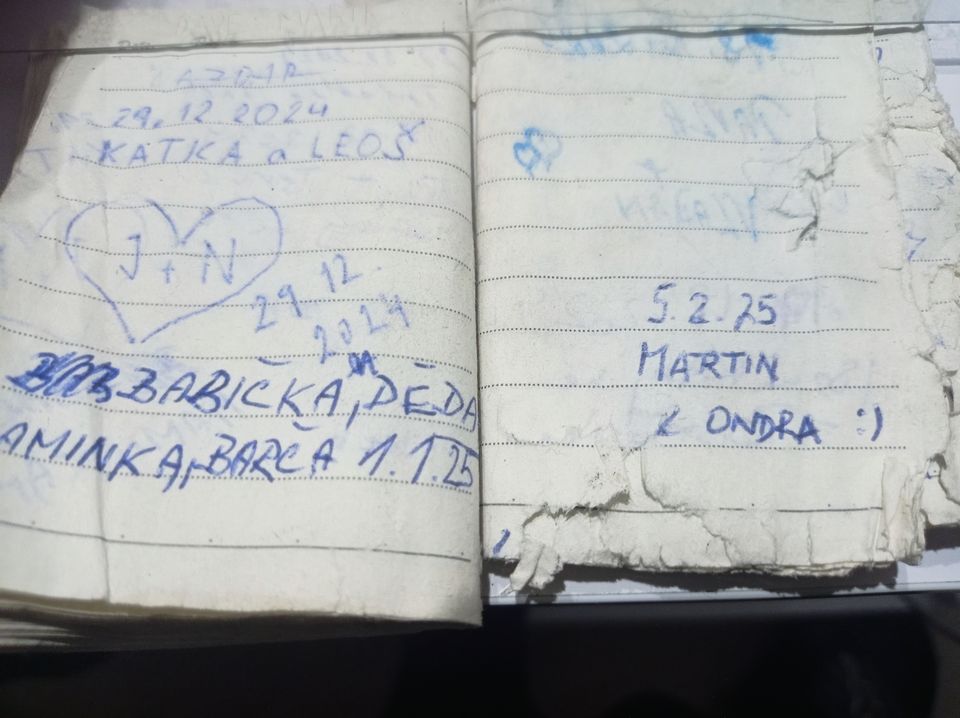 29.12.2024
KATKA a LEOŠ
J + N
29 12
2024
BABIČKA, DĚDA
AMINKA, BARČA 1.1.25
5.2.25
MARTIN
& ONDRA :)